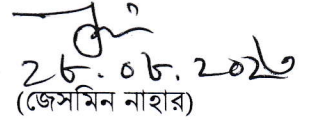 ২৮.০৮.২০২৩
(জেসমিন নাহার)